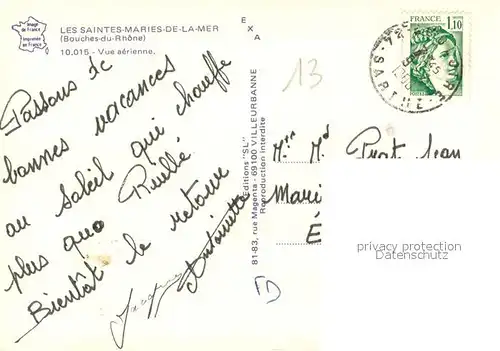 Image
de France
Imprimée
en France
LES SAINTES-MARIES-DE-LA-MER
(Bouches-du-Rhône)
10.015 - Vue aérienne.
E X A
Passons de
bonnes vacances
au Soleil qui chauffe
plus que Ruillé
Bientôt le retour
Antoinette
Editions "SL"
81-83, rue Magenta - 69100 VILLEURBANNE
Reproduction interdite
13
FRANCE
1,10
72
SARTHE
Mr Md Prat Jean
privacy protection
Datenschutz